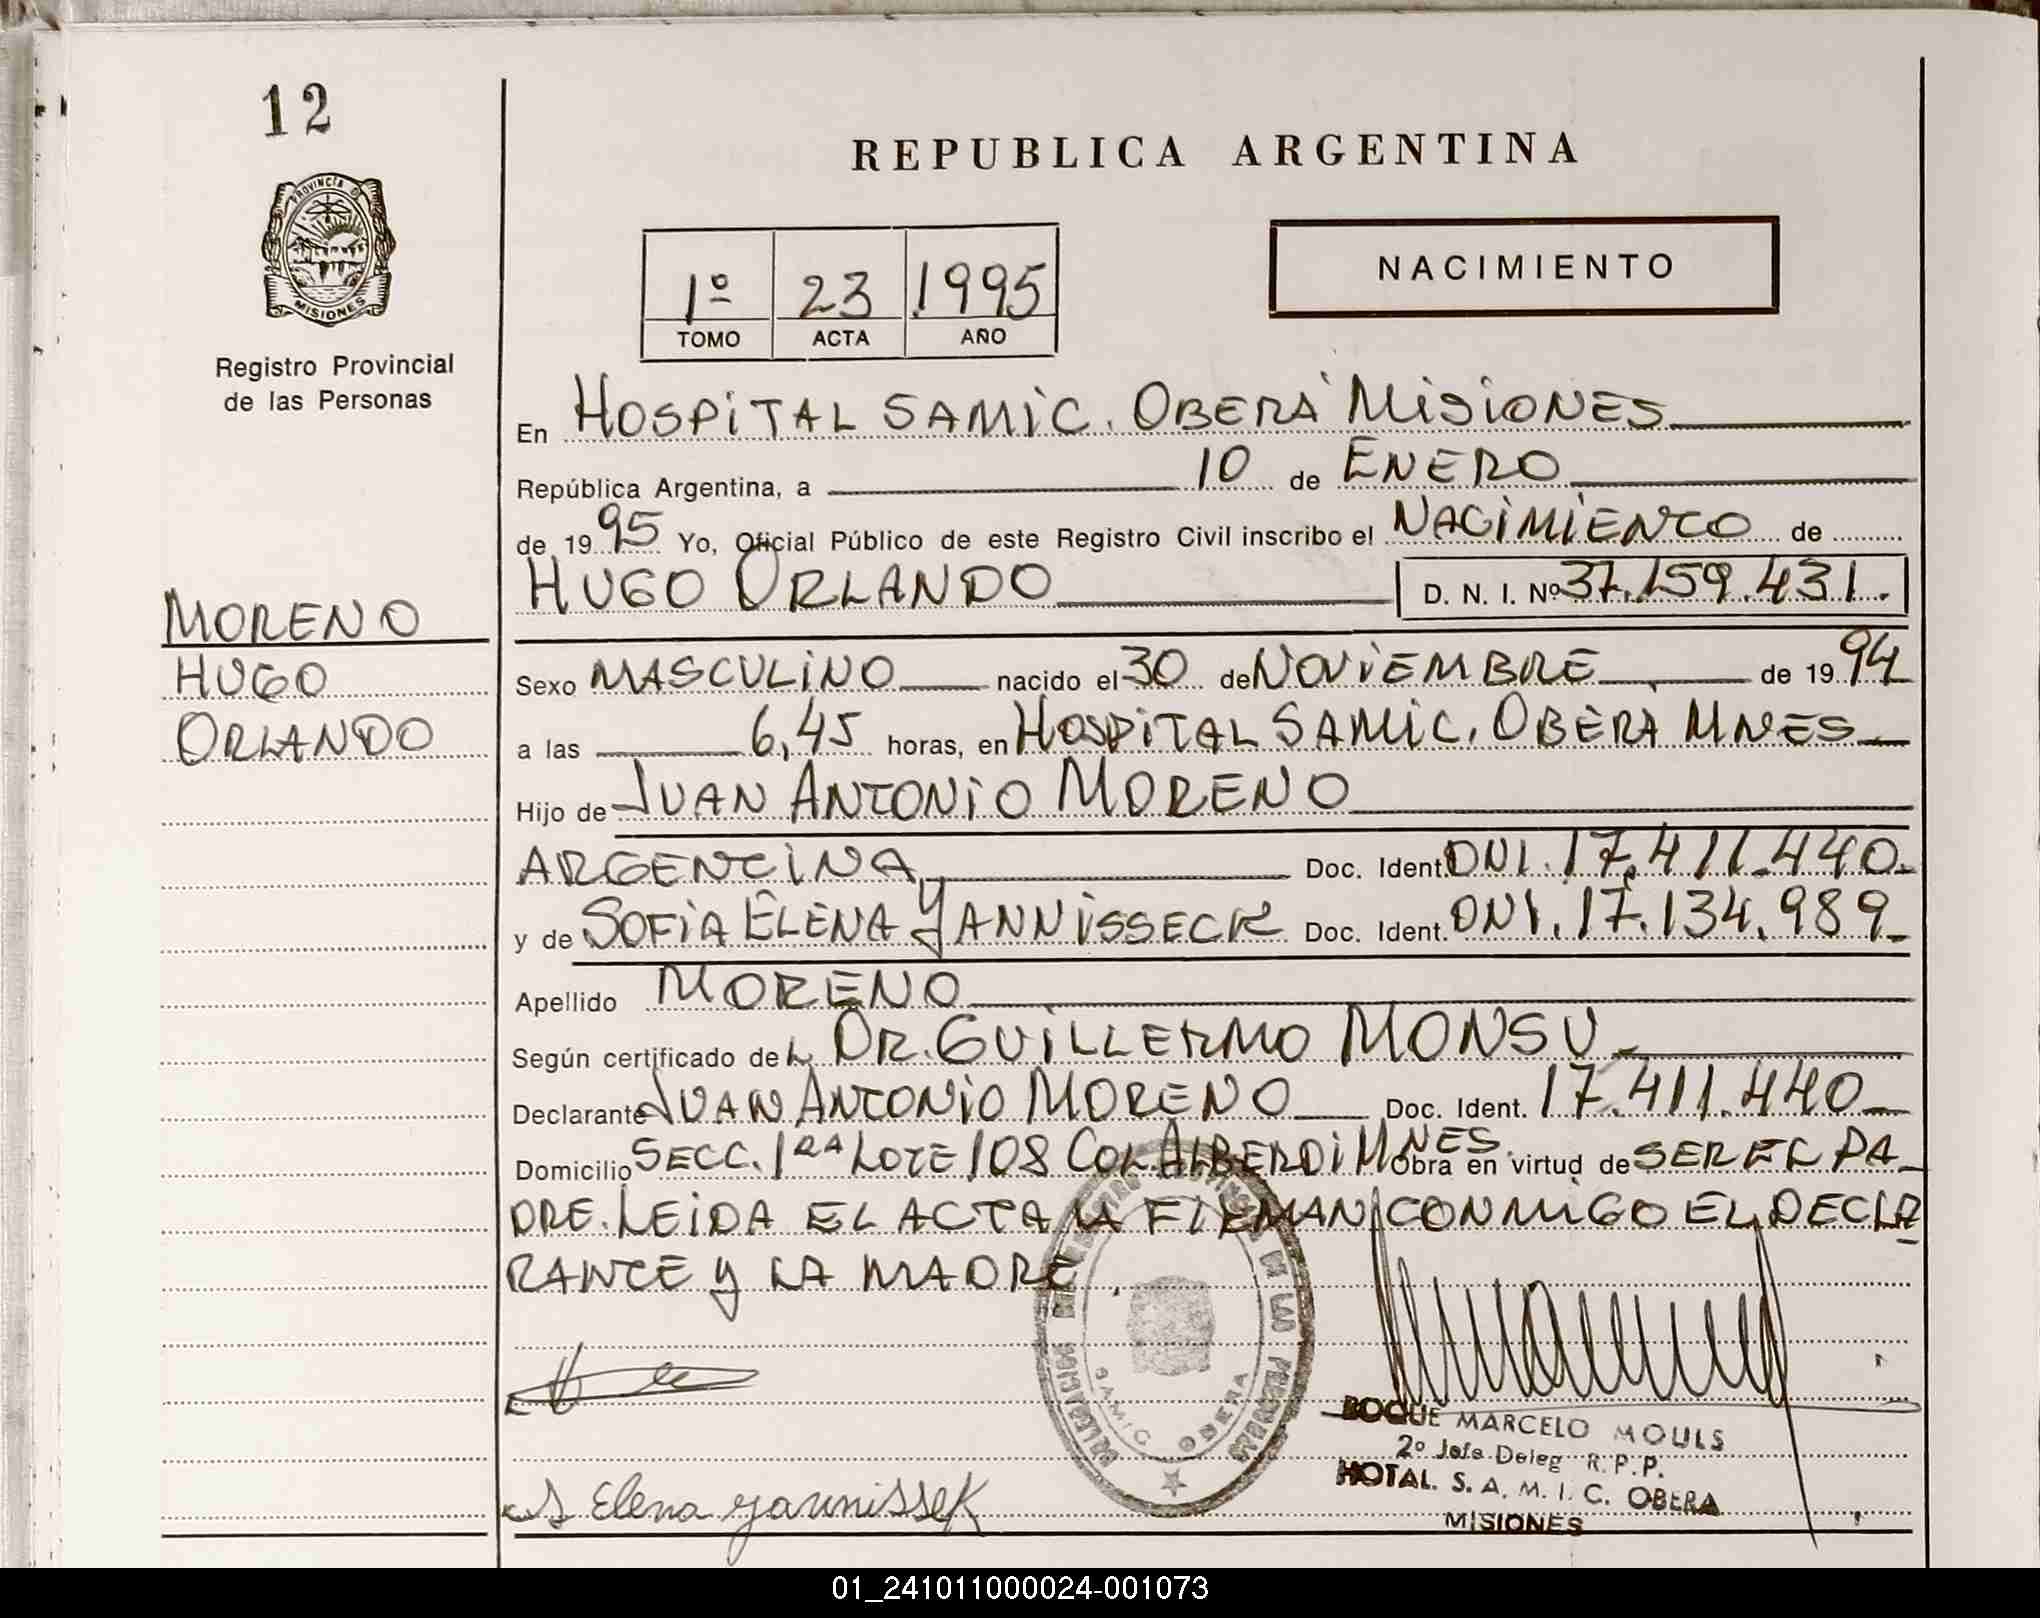 12
PROVINCIA D
MISIONES
Registro Provincial
de las Personas
MORENO
HUGO
ORLANDO
REPUBLICA ARGENTINA
1º 23 1995
TOMO ACTA AÑO
NACIMIENTO
En HOSPITAL SAMIC. OBERÁ MISIONES
República Argentina, a 10 de ENERO
de 1995 Yo, Oficial Público de este Registro Civil inscribo el NACIMIENTO de
HUGO ORLANDO D. N. I. Nº 37.159.431.
Sexo MASCULINO nacido el 30 de NOVIEMBRE de 1994
a las 6,45 horas, en HOSPITAL SAMIC. OBERA MNES
Hijo de JUAN ANTONIO MORENO
ARGENTINA Doc. Ident. DNI. 17.411.440
y de SOFIA ELENA YANNISSECK Doc. Ident. DNI. 17.134.989
Apellido MORENO
Según certificado del DR. GUILLERMO MONSU
Declarante JUAN ANTONIO MORENO Doc. Ident. 17.411.440
Domicilio SECC. 1RA LOTE 108 COL ALBERDI MNES. Obra en virtud de SER EL PA
DRE. LEIDA EL ACTA LA FIRMAN CONMIGO EL DECLA
RANTE y LA MADRE
DELEGACION REGISTRO PROVINCIAL DE LAS PERSONAS
SAMIC OBERA
S Elena Yannissek
ROQUE MARCELO MOULS
2º Jefe Deleg R.P.P.
HOTAL. S. A. M. I. C. OBERA
MISIONES
01_241011000024-001073